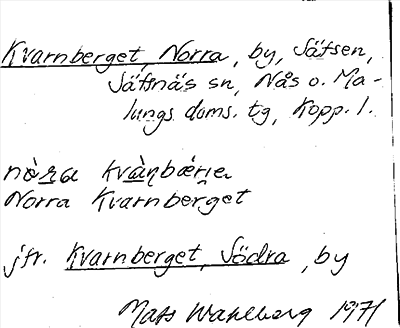 Kvarnberget, Norra, by, Säfsen,
Säfsnäs sn, Nås o. Ma-
lungs doms. tg, Kopp. l.
Norra Kvarnberget
jfr. Kvarnberget, Södra, by
Mats Wahlberg 1971